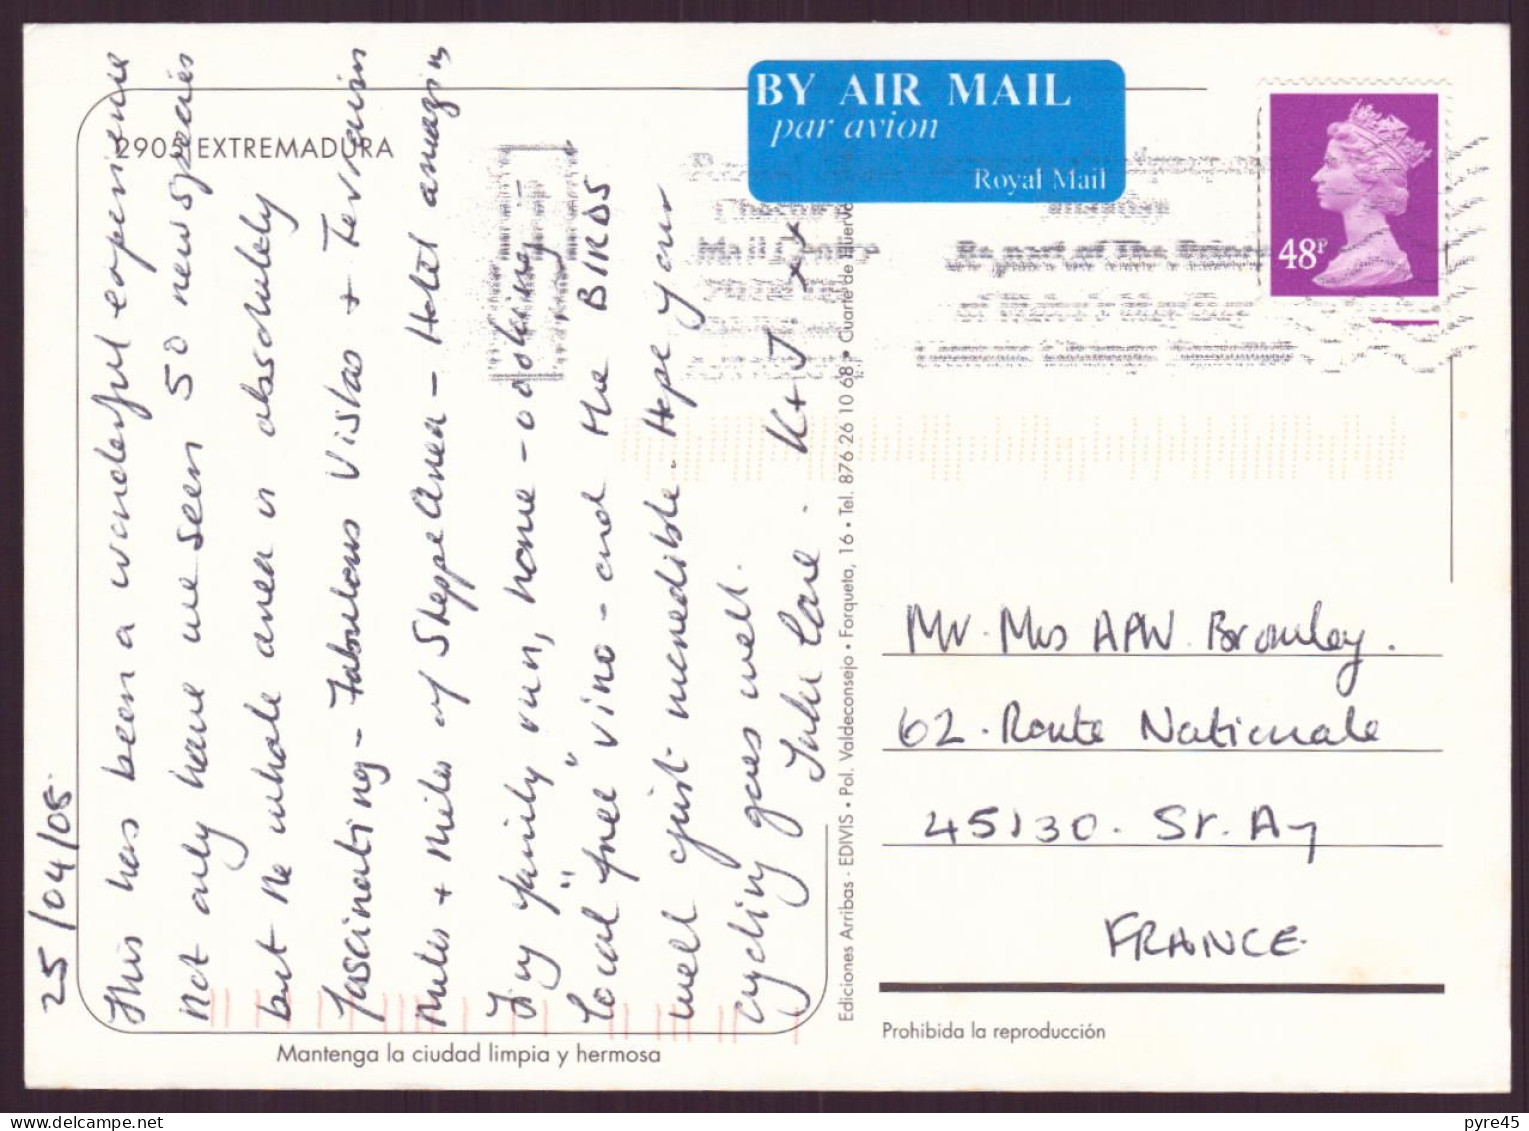 25/04/08
This has been a wonderful experience
Not only have we seen 50 new species
but the whole area is absolutely
fascinating - Fabulous Vistas + Terrain
Miles + Miles of Steppe Area - Hotel amazing
Tiny family run, home-cooking -
local "free" vino - and the BIRDS
well just incredible. Hope your
cycling goes well.
Luv K+J xx
2905 EXTREMADURA
Mantenga la ciudad limpia y hermosa
Ediciones Arribas - EDIVIS • Pol. Valdeconsejo • Forqueta, 16 • Tel. 876 26 10 68 • Cuarte de Huerva
BY AIR MAIL
par avion
Royal Mail
48P
Mr. Mrs APW. Bromley.
62. Route Nationale
45130. St. Ay
FRANCE.
Prohibida la reproducción
pyre45